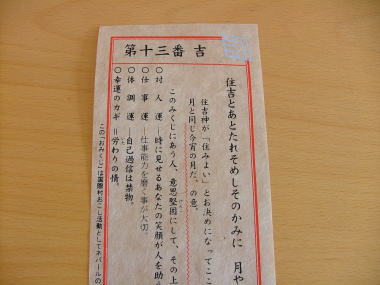 第十三番 吉
住吉とあとたれそめしそのかみに 月や
住吉神が「住みよい」とお決めになってここ
月と同じ今宵の月だ、の意。
このみくじにあう人、意思堅固にして、その上
〇対人運―時に見せるあなたの笑顔が人を助
〇仕事運―仕事能力を磨く事が大切。
〇体調運―自己過信は禁物。
〇幸運のカギ＝労わりの情。
この「おみくじ」は裏磐村おこし活動としてネパールの